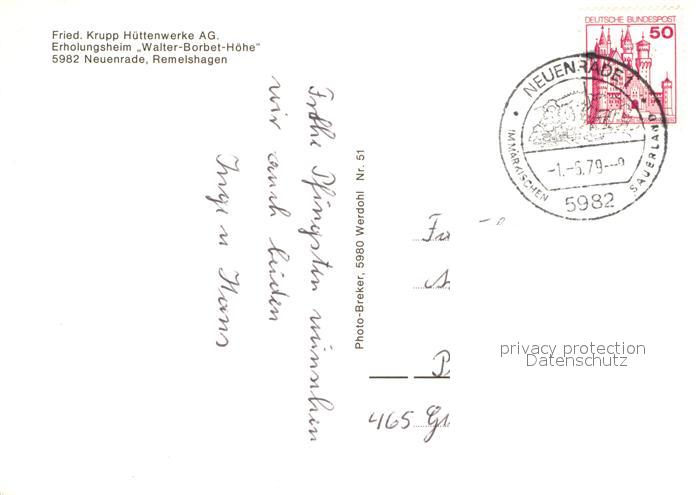 Fried. Krupp Hüttenwerke AG.
Erholungsheim „Walter-Borbet-Höhe"
5982 Neuenrade, Remelshagen
Frohe Pfingsten wünschen
wir euch beiden
Inge u Hans
Photo-Breker, 5980 Werdohl Nr. 51
DEUTSCHE BUNDESPOST
50
NEUENRADE 1
IM MÄRKISCHEN
SAUERLAND
-1.-6.79
5982
465
privacy protection
Datenschutz